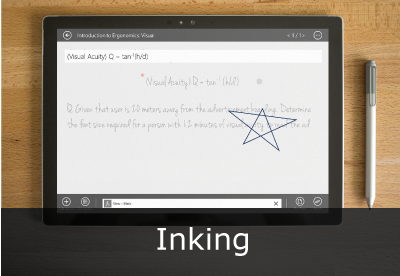 Introduction to Ergonomics: Visual
< 1 / 1 >
(Visual Acuity) Q = tan⁻¹(h/d)
* (Visual Acuity) Q = tan⁻¹ (h/d)
Q. Given that user is 20 meters away from the advertisement hoarding. Determine
the font size required for a person with 1.2 minutes of visual acuity to read the ad
Inking